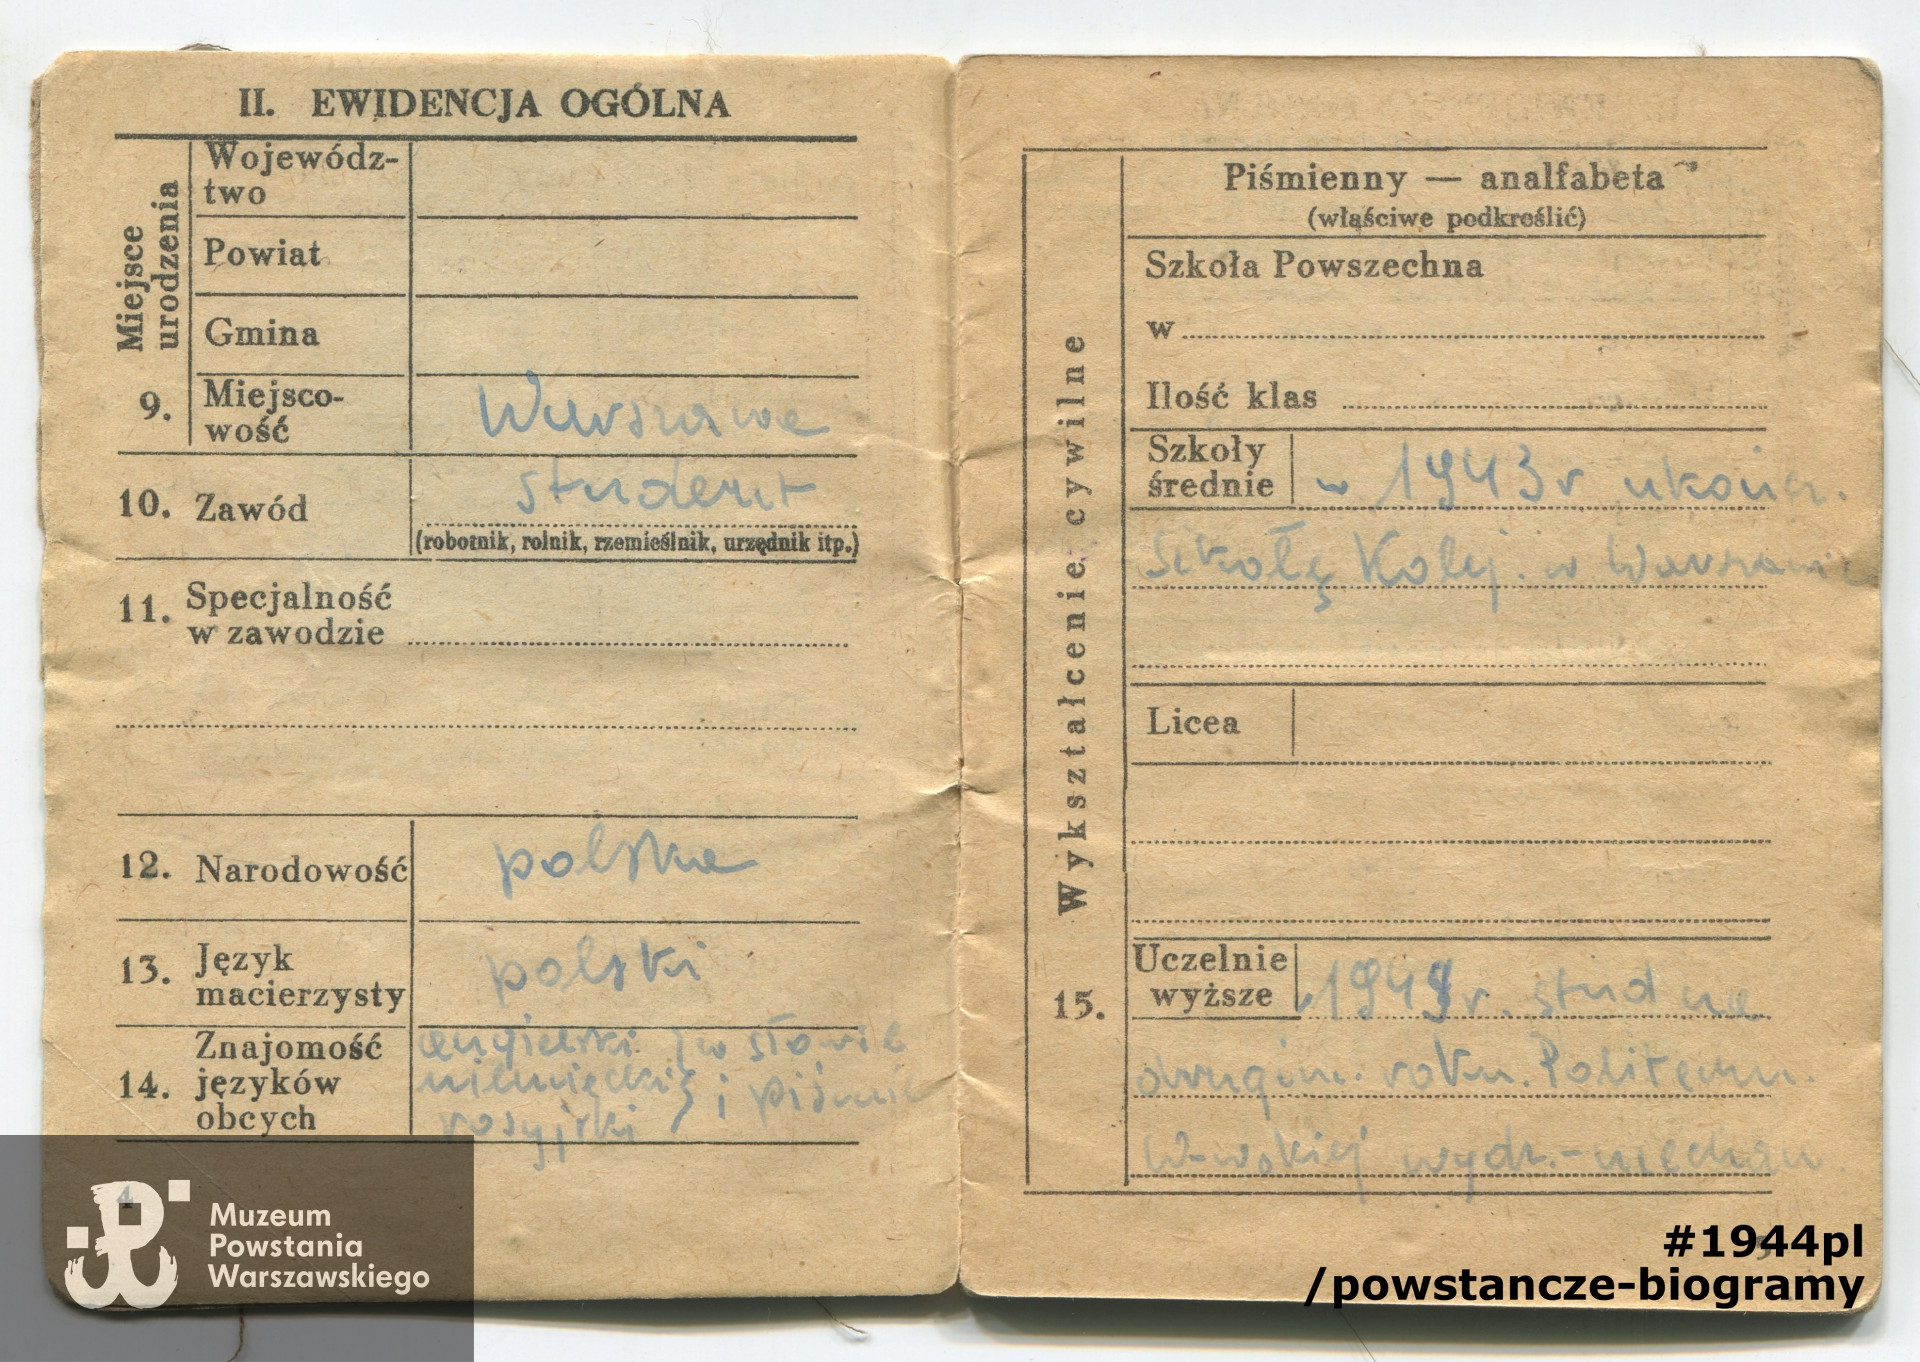 II. EWIDENCJA OGÓLNA
Miejsce
urodzenia
Wojewódz-
two
Powiat
Gmina
9. Miejsco-
wość
Warszawa
10. Zawód
student
(robotnik, rolnik, rzemieślnik, urzędnik itp.)
11. Specjalność
w zawodzie
12. Narodowość
polska
13. Język
macierzysty
polski
14. Znajomość
języków
obcych
angielski } w słowie
niemiecki } i piśmie
rosyjski
4
Muzeum
Powstania
Warszawskiego
15. Wykształcenie cywilne
Piśmienny — analfabeta
(właściwe podkreślić)
Szkoła Powszechna
w
Ilość klas
Szkoły
średnie
w 1943 r ukończ.
Szkołę Kolej. w Warszawie
Licea
Uczelnie
wyższe
w r. stud na
drugim. roku. Politechn.
W-wskiej wydz.-mechan.
5
#1944pl
/powstancze-biogramy